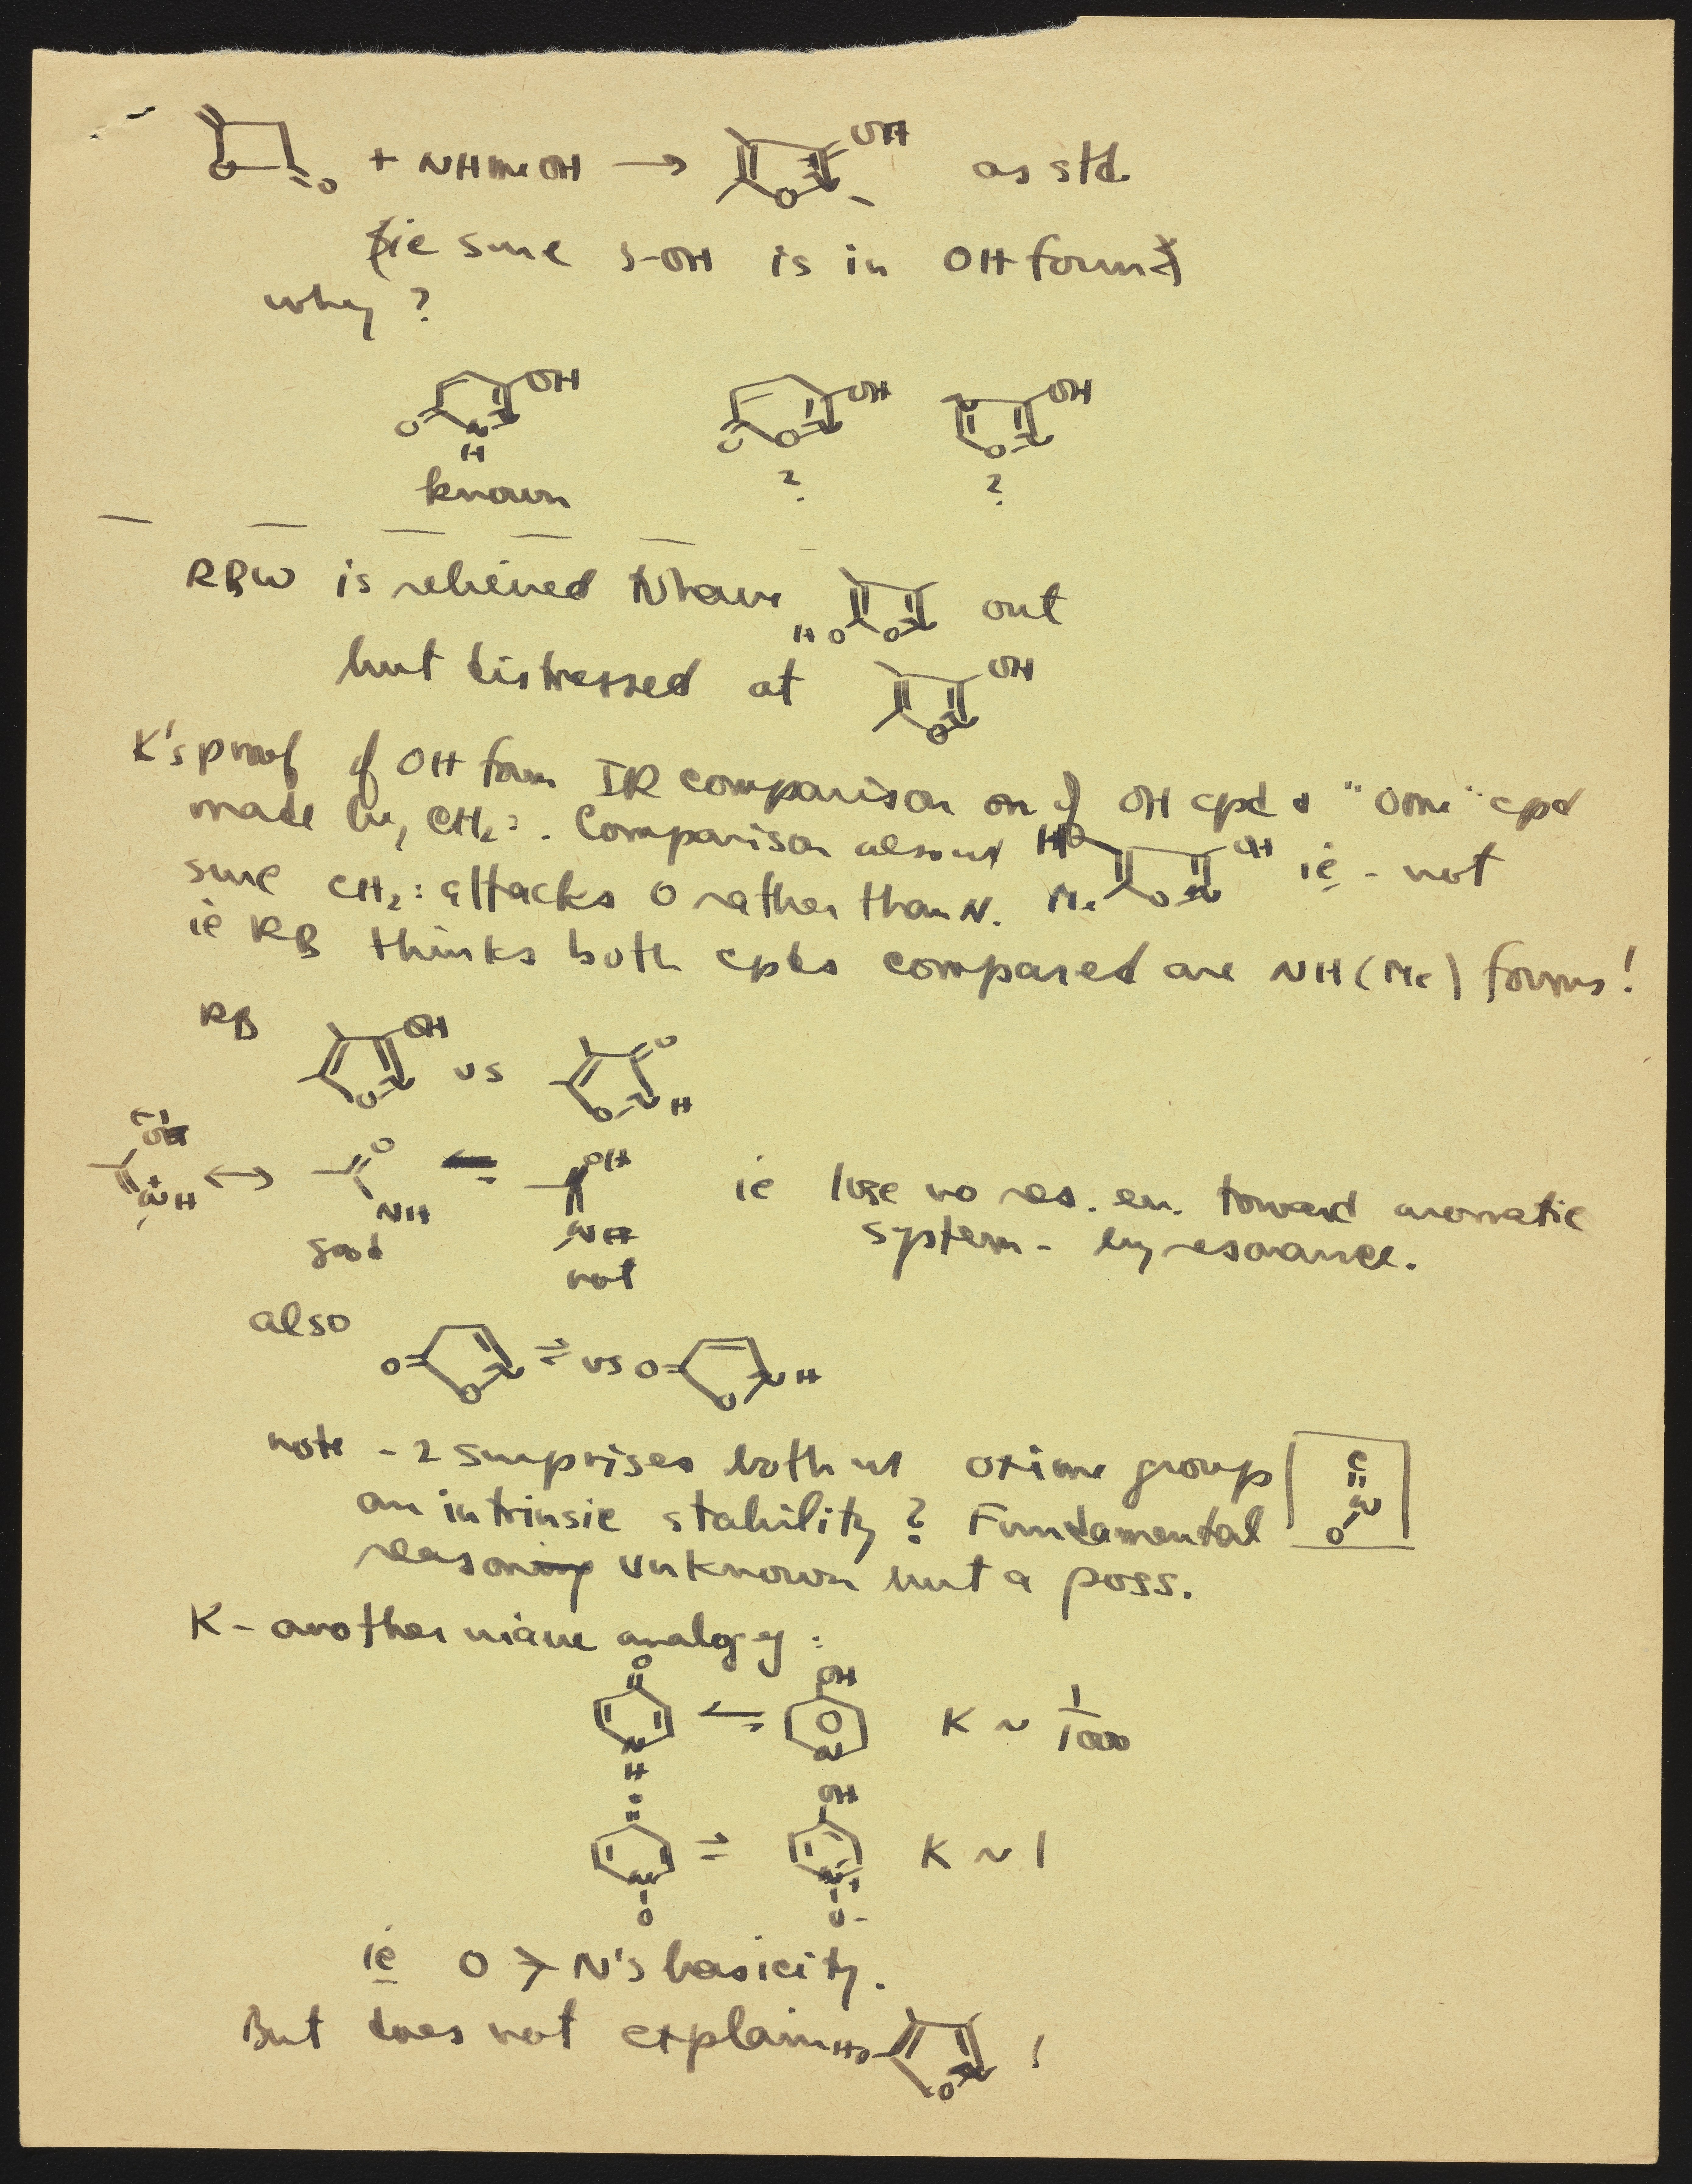 O O + NHMeOH → OH N O as std
(ie sure 3-OH is in OH form)
why ?
O N H N OH O O N OH N O N OH
known ? ?
RBW is relieved to have HO O N out
but distressed at OH O N
K's proof of OH form IR comparison on of OH cpd & "OMe" cpd
made by CH₂: . Comparison also w/ HO OH Me O N ie - not
sure CH₂: attacks O rather than N.
ie RB thinks both cpds compared are NH(Me) forms!
RB OH O N vs O O N H
O⁻ N⁺H ↔ O NH ⇌ OH N ie lose no res. en. toward aromatic
good system - by resonance.
not
also O O N ⇌ vs O O N H
note - 2 surprises both w/ oxime group C N O
an intrinsic stability ? Fundamental
reason unknown but a poss.
K - another naive analogy :
O N H ⇌ OH N K ~ 1/1000
: :
N O ⇌ OH N⁺ O⁻ K ~ 1
ie O > N's basicity.
But does not explain HO O N !